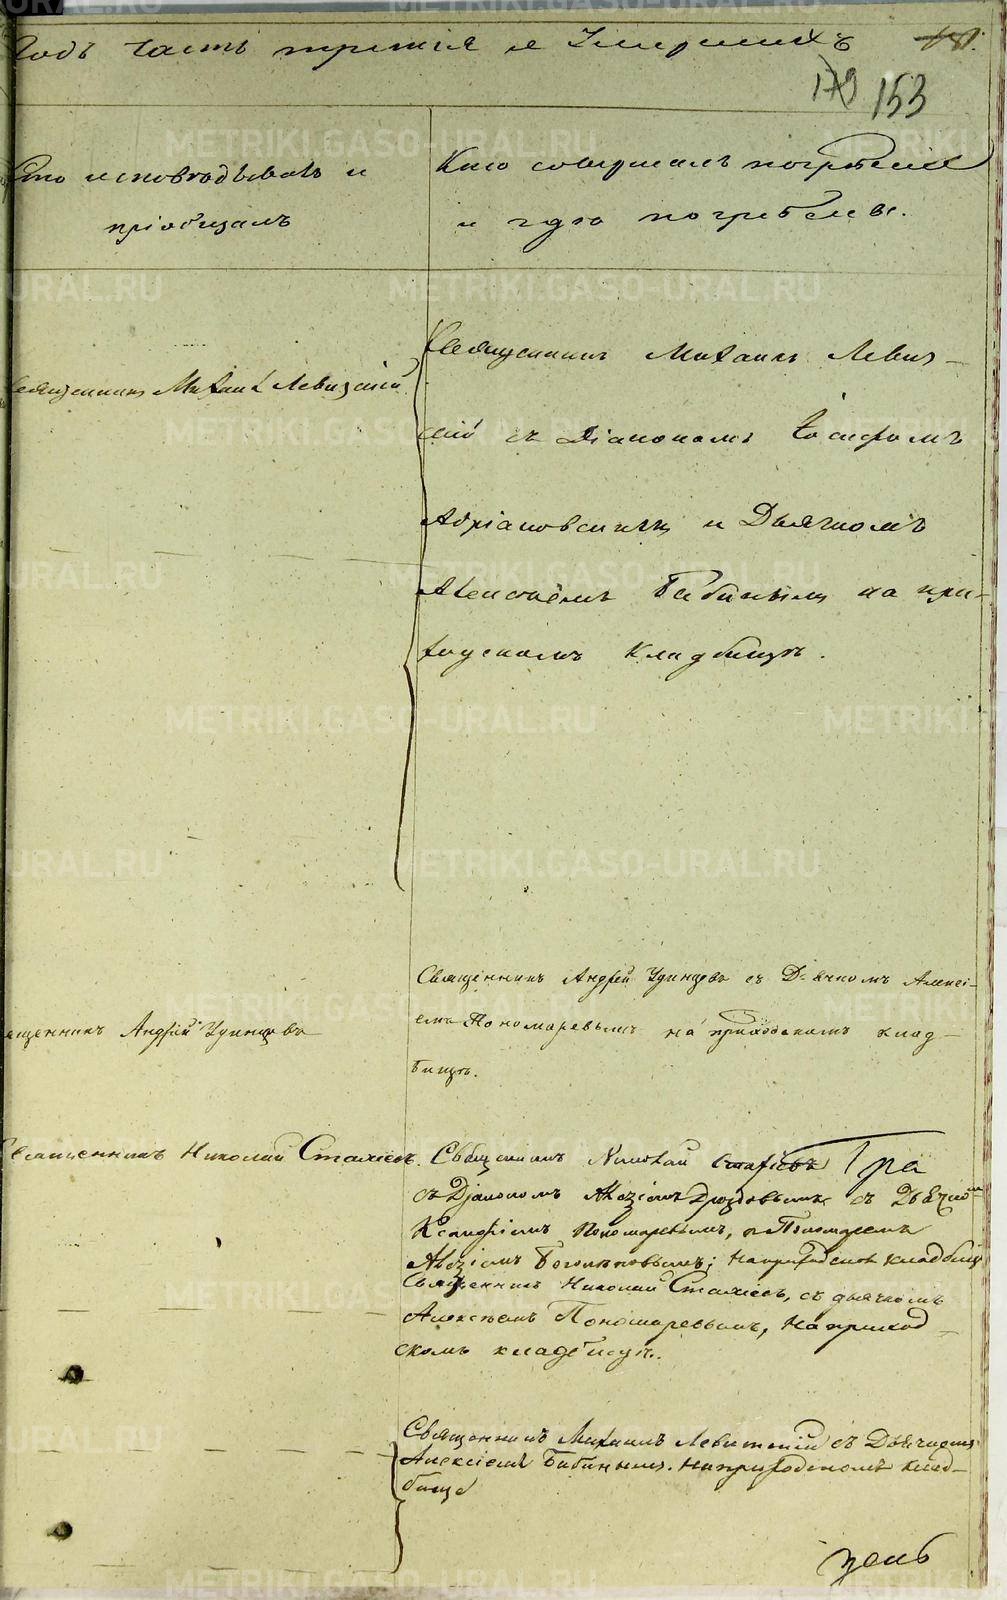 Годъ часть третія о Умершихъ
181.
179 153
Кто исповѣдывалъ и
пріобщалъ
Кто совершалъ погребеніе
и гдѣ погребены.
Священникъ Михаилъ Левицкій
Священникъ Михаилъ Левиц-
кій съ Діакономъ Іосифомъ
Адріановскимъ и Дьячкомъ
Алексѣемъ Бабинымъ на при-
ходскомъ кладбищѣ.
Священникъ Андрей Удинцовъ
Священникъ Андрей Удинцовъ съ Дьячкомъ Алексі-
емъ Пономаревымъ на приходскомъ клад-
бищѣ.
Священникъ Николай Стахіевъ.
Священникъ Николай Стахіевъ
съ Діакономъ Дроздовымъ съ Дьячкомъ
Пономаревымъ, и Пономаремъ
на приходскомъ кладбищѣ
Священникъ Николай Стахіевъ, съ дьячкомъ
Алексѣемъ Пономаревымъ, на приход-
скомъ кладбищѣ.
Священникъ Михаилъ Левитскій съ Дьячкомъ
Алексіемъ Бабинымъ. на приходскомъ клад-
бище
METRIKI.GASO-URAL.RU